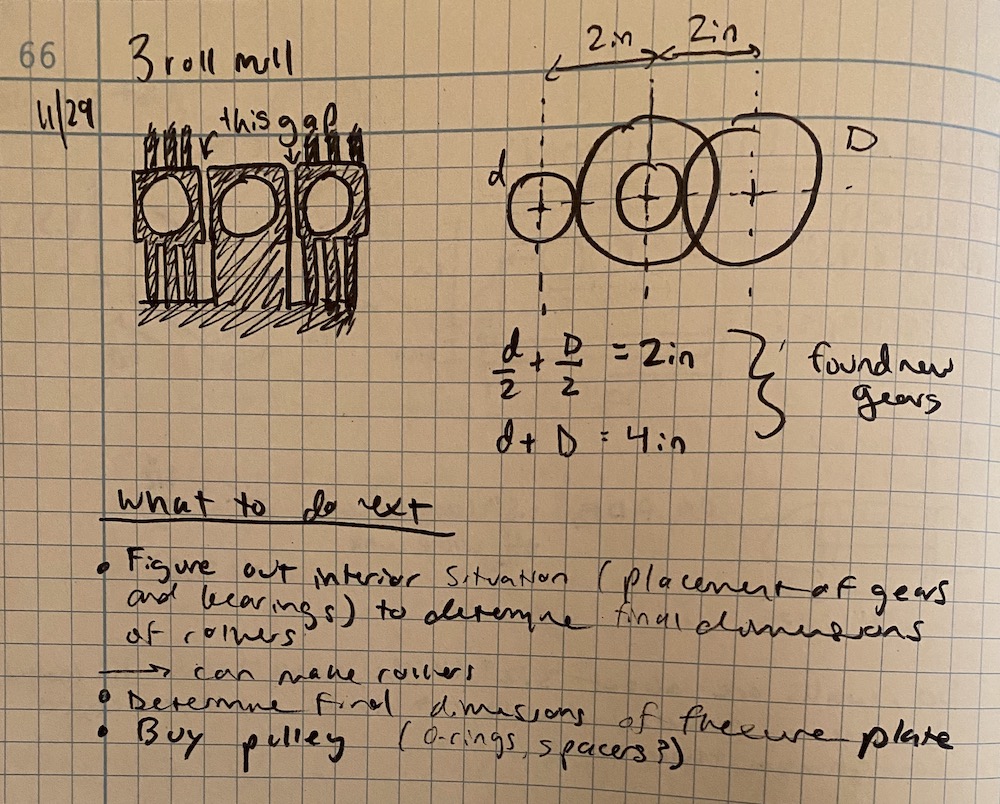 66
3 roll mill
11/29
this gap
2in
2in
d
D
d/2 + D/2 = 2in
d + D = 4in
found new
gears
What to do next
• Figure out interior situation (placement of gears
and bearings) to determine final dimensions
of rollers
→ can make rollers
• Determine final dimensions of plate
• Buy pulley (O-rings, spacers?)